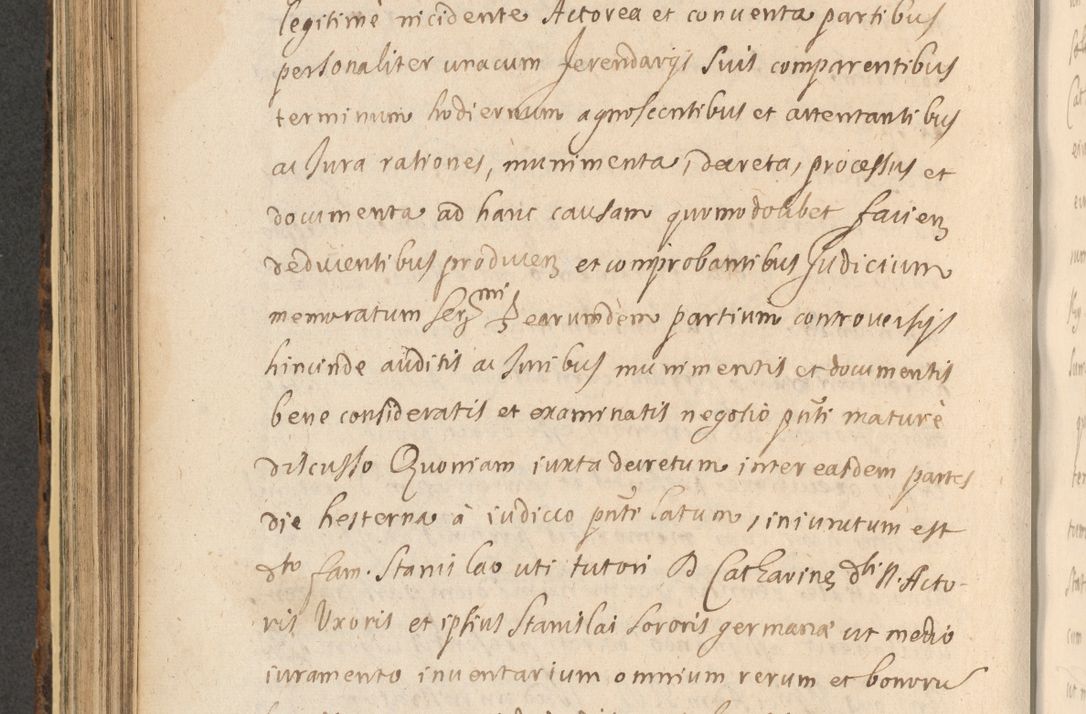 legitimè incidente Actorea et conventa partibus
personaliter unacum Ferendarijs suis comparentibus
terminum hodiernum agnoscentibus et attentantibus
ac Jura rationes, munimenta, decreta, processus et
documenta ad hanc causam quomodolibet facien
deducentibus producen et comprobantibus Judicium
memoratum Ser mi earumdem partium controversijs
hincinde auditis ac Juribus munimentis et documentis
bene consideratis et examinatis negotio pnti maturè
discusso Quoniam iuxta decretum inter easdem partes
die hesterna à iudicio pnti latum, iniunctum est
dto fam. Stanislao uti tutori Catharinę dti N. Acto-
ris Uxoris et ipsius Stanislai sororis germanæ ut medio
iuramento inventarium omnium rerum et bonoru